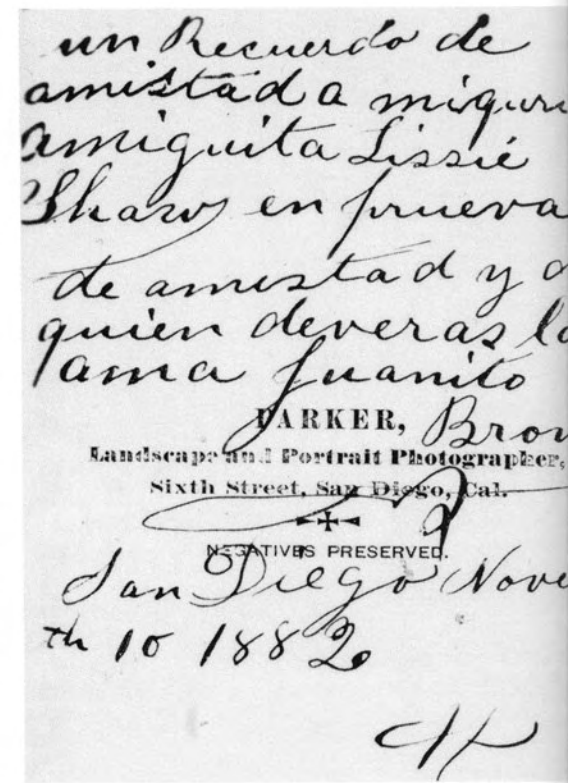 un Recuerdo de
amistad a miquri
amiguita Lissie
Shaw en prueva
de amestad y d
quien deveras la
ama Juanito
PARKER, Brow
Landscape and Portrait Photographer,
Sixth Street, San Diego, Cal.
NEGATIVES PRESERVED.
San Diego Nove
th 10 1882